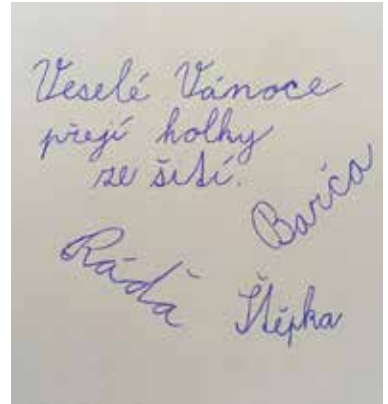 Veselé Vánoce
přejí holky
ze šití.
Barča
Ráďa
Štěpka